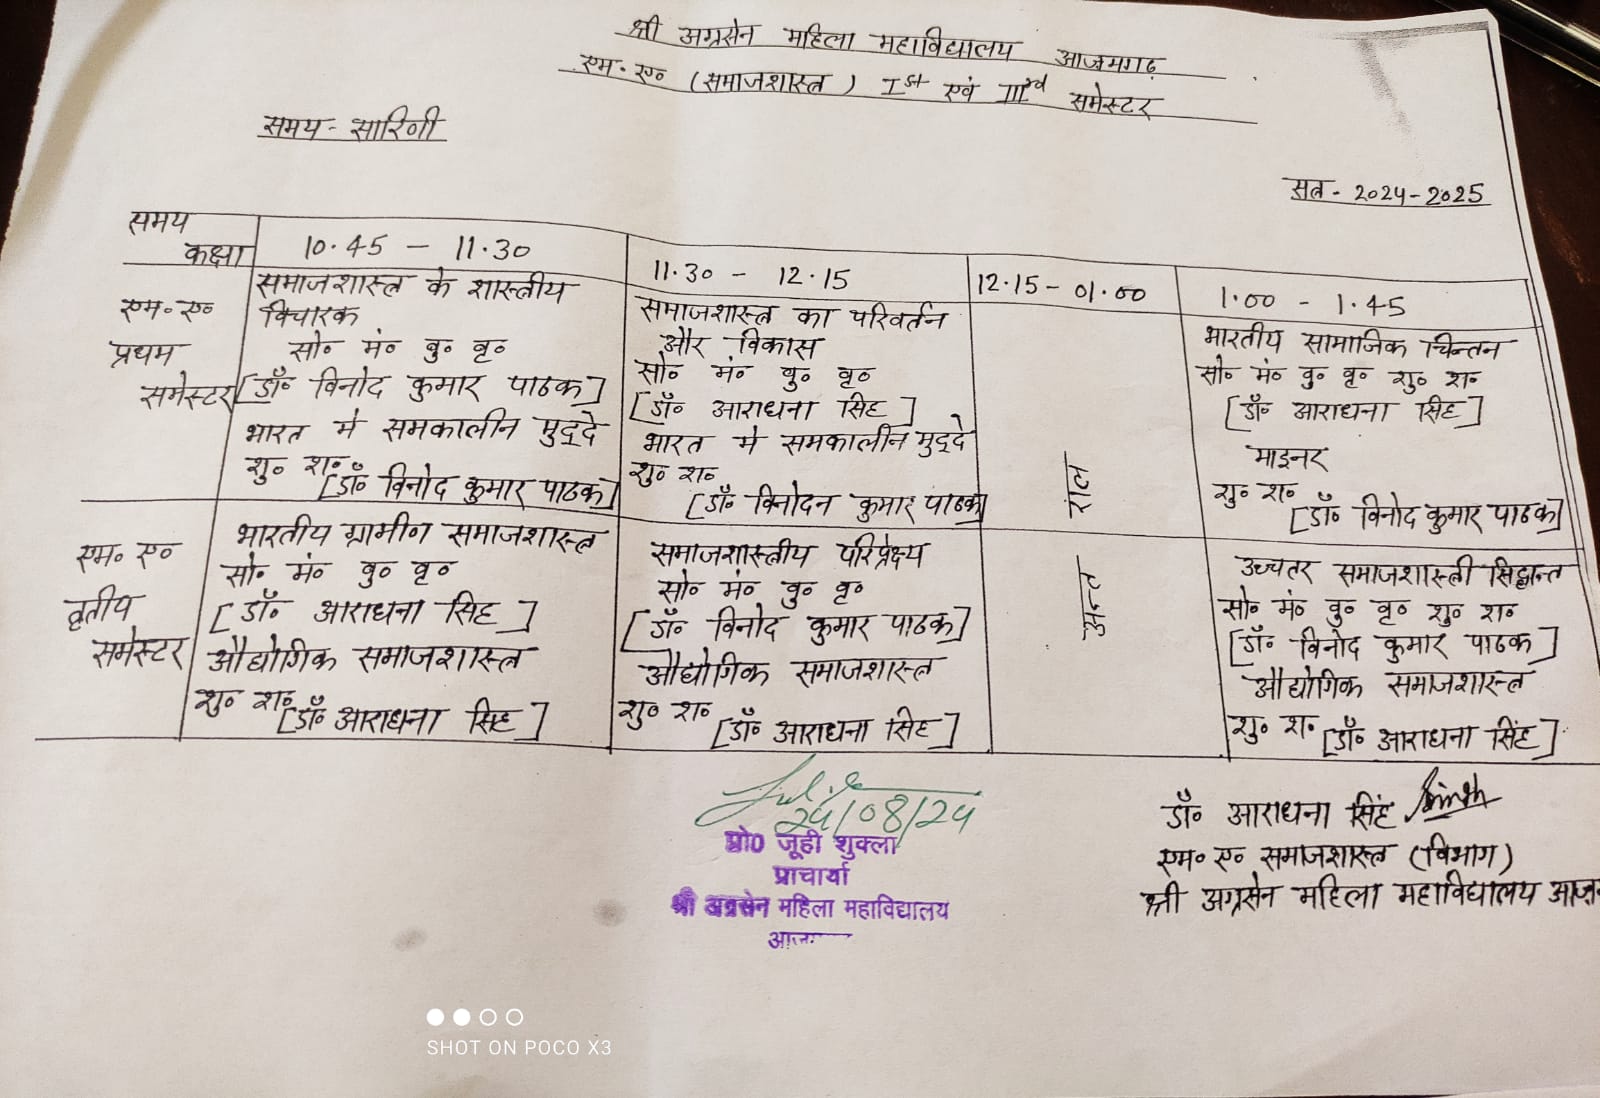 श्री अग्रसेन महिला महाविद्यालय आजमगढ़
एम॰ ए॰ (समाजशास्त्र) Ist एवं IIIrd समेस्टर
समय - सारिणी
सत्र - 2024-2025
समय
कक्षा
10.45 - 11.30
11.30 - 12.15
12.15 - 01.00
1.00 - 1.45
एम॰ ए॰
प्रथम
समेस्टर
समाजशास्त्र के शास्त्रीय
विचारक
सो॰ मं॰ वु॰ वृ॰
[डॉ॰ विनोद कुमार पाठक]
भारत मे समकालीन मुद्दे
शु॰ श॰
[डॉ॰ विनोद कुमार पाठक]
समाजशास्त्र का परिवर्तन
और विकास
सो॰ मं॰ वु॰ वृ॰
[डॉ॰ आराधना सिंह]
भारत मे समकालीन मुद्दे
शु॰ श॰
[डॉ॰ विनोदन कुमार पाठक]
भारतीय सामाजिक चिन्तन
सो॰ मं॰ वु॰ वृ॰ शु॰ श॰
[डॉ॰ आराधना सिंह]
माइनर
शु॰ श॰
[डॉ॰ विनोद कुमार पाठक]
एम॰ ए॰
तृतीय
समेस्टर
भारतीय ग्रामीण समाजशास्त्र
सो॰ मं॰ वु॰ वृ॰
[डॉ॰ आराधना सिंह]
औद्योगिक समाजशास्त्र
शु॰ श॰
[डॉ॰ आराधना सिंह]
समाजशास्त्रीय परिप्रेक्ष्य
सो॰ मं॰ वु॰ वृ॰
[डॉ॰ विनोद कुमार पाठक]
औद्योगिक समाजशास्त्र
शु॰ श॰
[डॉ॰ आराधना सिंह]
अन्तराल
उच्चतर समाजशास्त्री सिद्धान्त
सो॰ मं॰ वु॰ वृ॰ शु॰ श॰
[डॉ॰ विनोद कुमार पाठक]
औद्योगिक समाजशास्त्र
शु॰ श॰ [डॉ॰ आराधना सिंह]
24/08/24
प्रो0 जूही शुक्ला
प्राचार्या
श्री अग्रसेन महिला महाविद्यालय
डॉ॰ आराधना सिंह Singh
एम॰ ए॰ समाजशास्त्र (विभाग)
श्री अग्रसेन महिला महाविद्यालय आज़
SHOT ON POCO X3